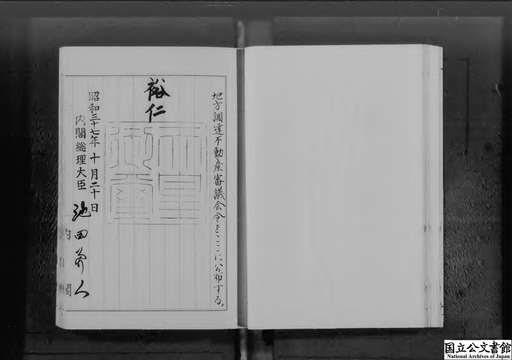 地方調達不動産審議会令をここに公布する。
裕仁
天皇御璽
昭和三十七年十月二十日
内閣総理大臣 池田勇人
内閣
国立公文書館
National Archives of Japan